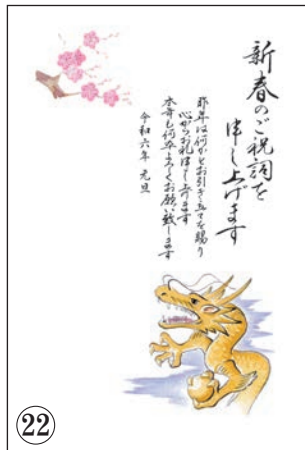 新春のご祝詞を
申し上げます
昨年は何かとお引き立てを賜り
心からお礼申し上げます
本年も何卒よろしくお願い致します
令和六年 元旦
22